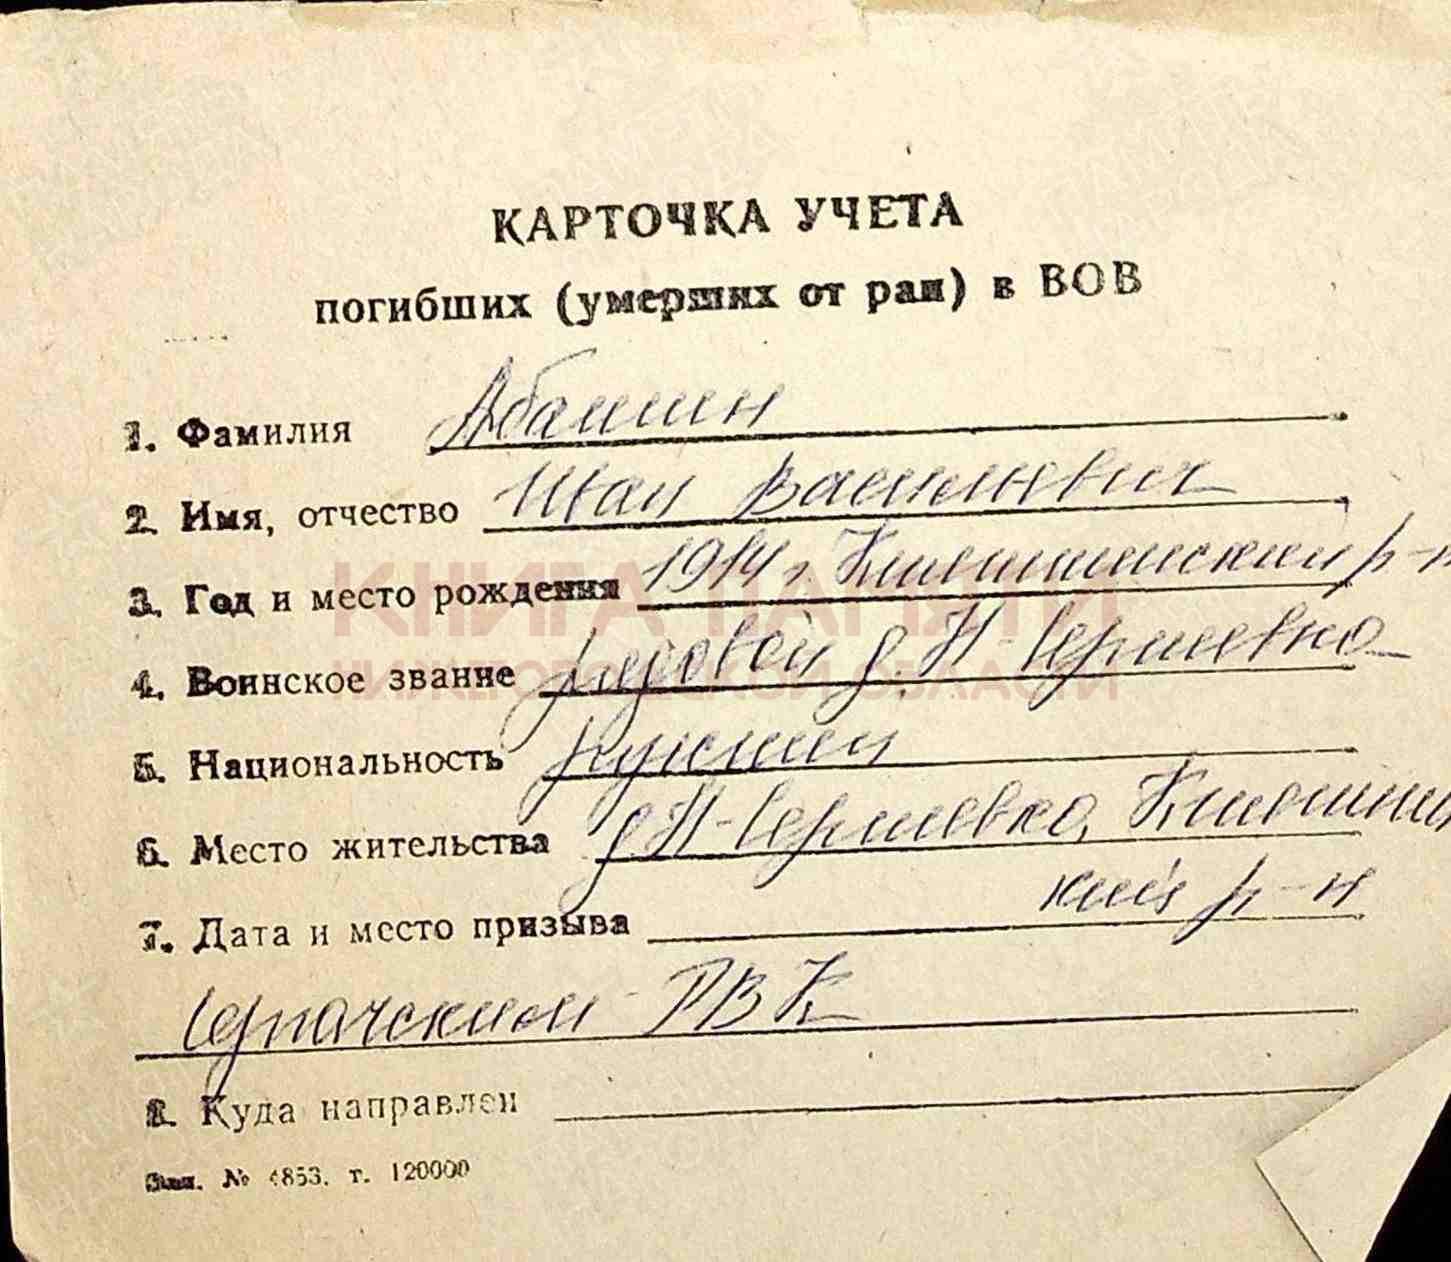 КАРТОЧКА УЧЕТА
погибших (умерших от ран) в ВОВ
1. Фамилия Абашин
2. Имя, отчество Иван Васильевич
3. Год и место рождения 1914 г. Княгининский р-н
4. Воинское звание рядовой д. Н-Сергиевка
5. Национальность русский
6. Место жительства д. Н-Сергиевка, Княгинин
ский р-н
7. Дата и место призыва
Сергачским РВК
8. Куда направлен
Зак. № 4853. т. 120000
КНИГА ПАМЯТИ
НИЖЕГОРОДСКОЙ ОБЛАСТИ